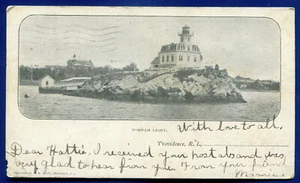 POMHAM LIGHT.
Providence, R. I.
With love to all.
Dear Hattie, I received your postal and was
very glad to hear from you. From your friend